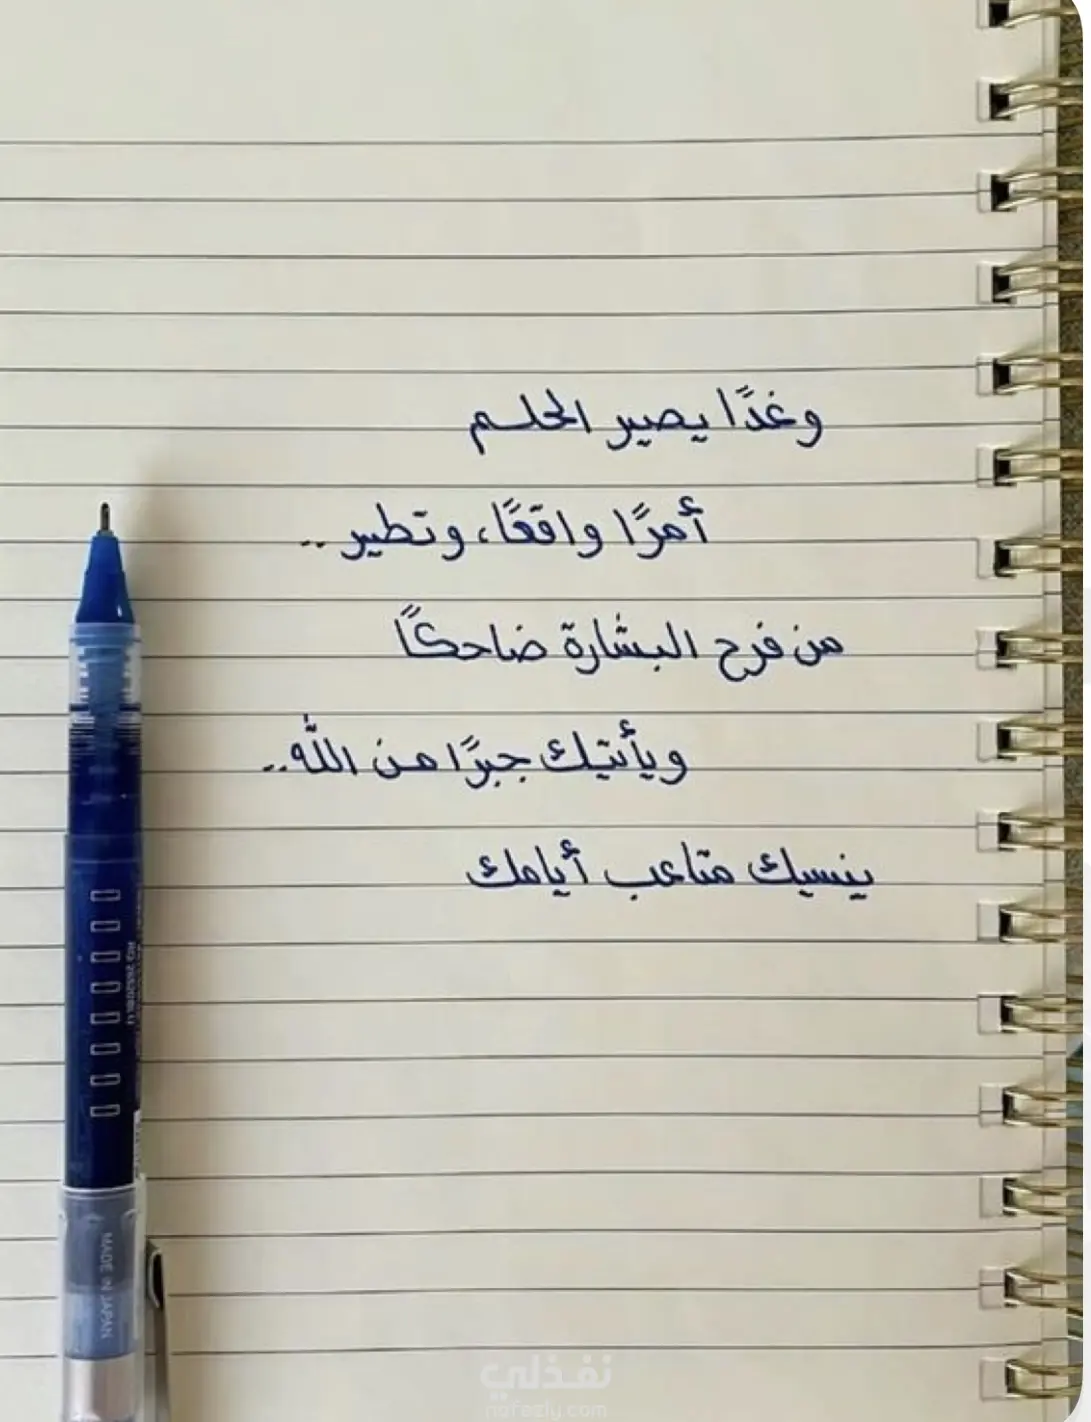 وغدًا يصير الحلم
أمرًا واقعًا، وتطير ..
من فرح البشارة ضاحكًا
ويأتيك جبرًا من الله..
ينسيك متاعب أيامك
MADE IN JAPAN
نفذلي
nafezly.com